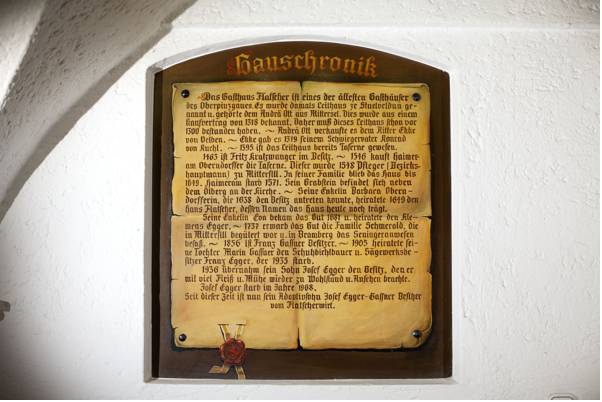 Hauschronik
Das Gasthaus Flatscher ist eines der ältesten Gasthäuser
des Oberpinzgaues. Es wurde damals Leithaus ze Stuelveldun ge-
nannt u. gehörte dem Andrä Ott aus Mittersel. Dies wurde aus einem
Kaufvertrag von 1318 bekannt. Daher muß dieses Leithaus schon vor
1300 bestanden haben. ~ Andrä Ott verkaufte es dem Ritter Ekke
von Velben. ~ Ekke gab es 1319 seinem Schwiegervater Konrad
von Kuchl. ~ 1595 ist das Leithaus bereits Taferne gewesen.
1463 ist Fritz Kratzwanger im Besitz. ~ 1546 kauft Haimer-
am Oberndorffer die Taferne. Dieser wurde 1548 Pfleger (Bezirks-
hauptmann) zu Mittersill. In seiner Familie blieb das Haus bis
1649. Haimeram starb 1571. Sein Grabstein befindet sich neben
dem Ölberg an der Kirche. ~ Seine Enkelin Barbara Obern-
dorfferin, die 1638 den Besitz antreten konnte, heiratete 1649 den
Hans Flatscher, dessen Namen das Haus heute noch trägt.
Seine Enkelin Eva bekam das Gut 1697 u. heiratete den Kle-
mens Egger. ~ 1737 erwarb das Gut die Familie Schmerold, die
in Mittersill begütert war u. in Bramberg das Seningeranwesen
besaß. ~ 1856 ist Franz Gaßner Besitzer. ~ 1905 heiratete sei-
ne Tochter Maria Gaßner den Schuhbichlbauer u. Sägewerksbe-
sitzer Franz Egger, der 1933 starb.
1936 übernahm sein Sohn Josef Egger den Besitz, den er
mit viel Fleiß u. Mühe wieder zu Wohlstand u. Ansehen brachte.
Josef Egger starb im Jahre 1968.
Seit dieser Zeit ist nun sein Adoptivsohn Josef Egger-Gaßner Besitzer
vom Flatscherwirt.